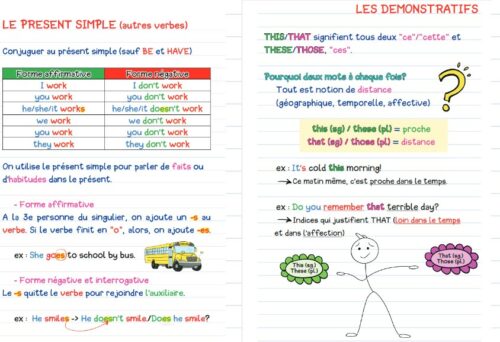 LE PRESENT SIMPLE (autres verbes)
Conjuguer au présent simple (sauf BE et HAVE)
Forme affirmative Forme négative
I work I don't work
you work you don't work
he/she/it works he/she/it doesn't work
we work we don't work
you work you don't work
they work they don't work
On utilise le présent simple pour parler de faits ou
d'habitudes dans le présent.
- Forme affirmative
A la 3e personne du singulier, on ajoute un -s au
verbe. Si le verbe finit en "o", alors, on ajoute -es.
ex : She goes to school by bus.
- Forme négative et interrogative
Le -s quitte le verbe pour rejoindre l'auxiliaire.
ex : He smiles -> He doesn't smile/Does he smile?
LES DEMONSTRATIFS
THIS/THAT signifient tous deux "ce"/"cette" et
THESE/THOSE, "ces".
Pourquoi deux mots à chaque fois?
Tout est notion de distance
(géographique, temporelle, affective)
this (sg) / these (pl) = proche
that (sg) / those (pl) = distance
ex : It's cold this morning!
→ Ce matin même, c'est proche dans le temps.
ex : Do you remember that terrible day?
→ Indices qui justifient THAT (loin dans le temps
et dans l'affection)
This (sg)
These (pl)
That (sg)
Those (pl)